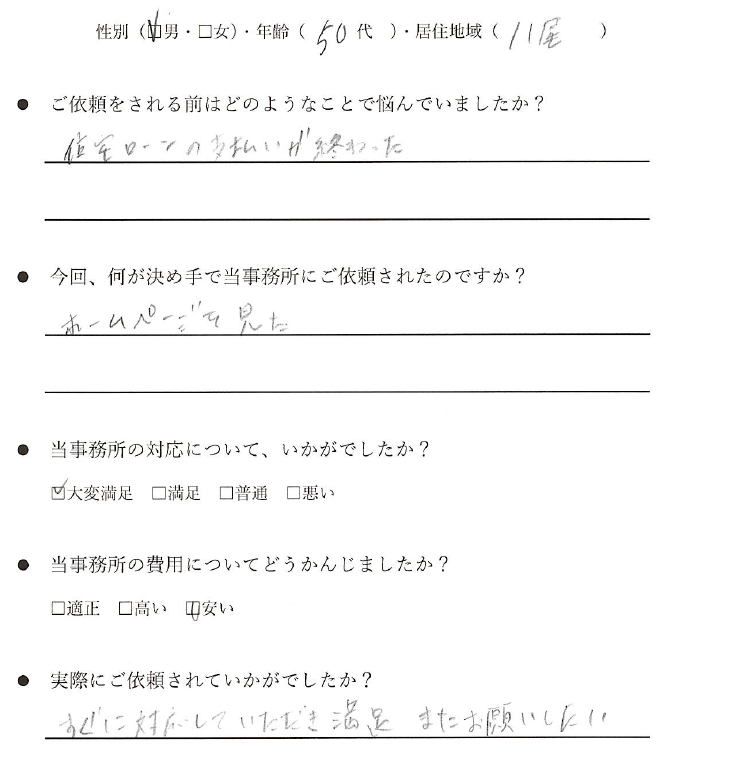 性別(☑男・□女)・年齢( 50 代 )・居住地域( 八尾 )
● ご依頼をされる前はどのようなことで悩んでいましたか？
住宅ローンの支払いが終わった
● 今回、何が決め手で当事務所にご依頼されたのですか？
ホームページを見た
● 当事務所の対応について、いかがでしたか？
☑大変満足 □満足 □普通 □悪い
● 当事務所の費用についてどうかんじましたか？
□適正 □高い ☑安い
● 実際にご依頼されていかがでしたか？
すぐに対応していただき満足 またお願いしたい